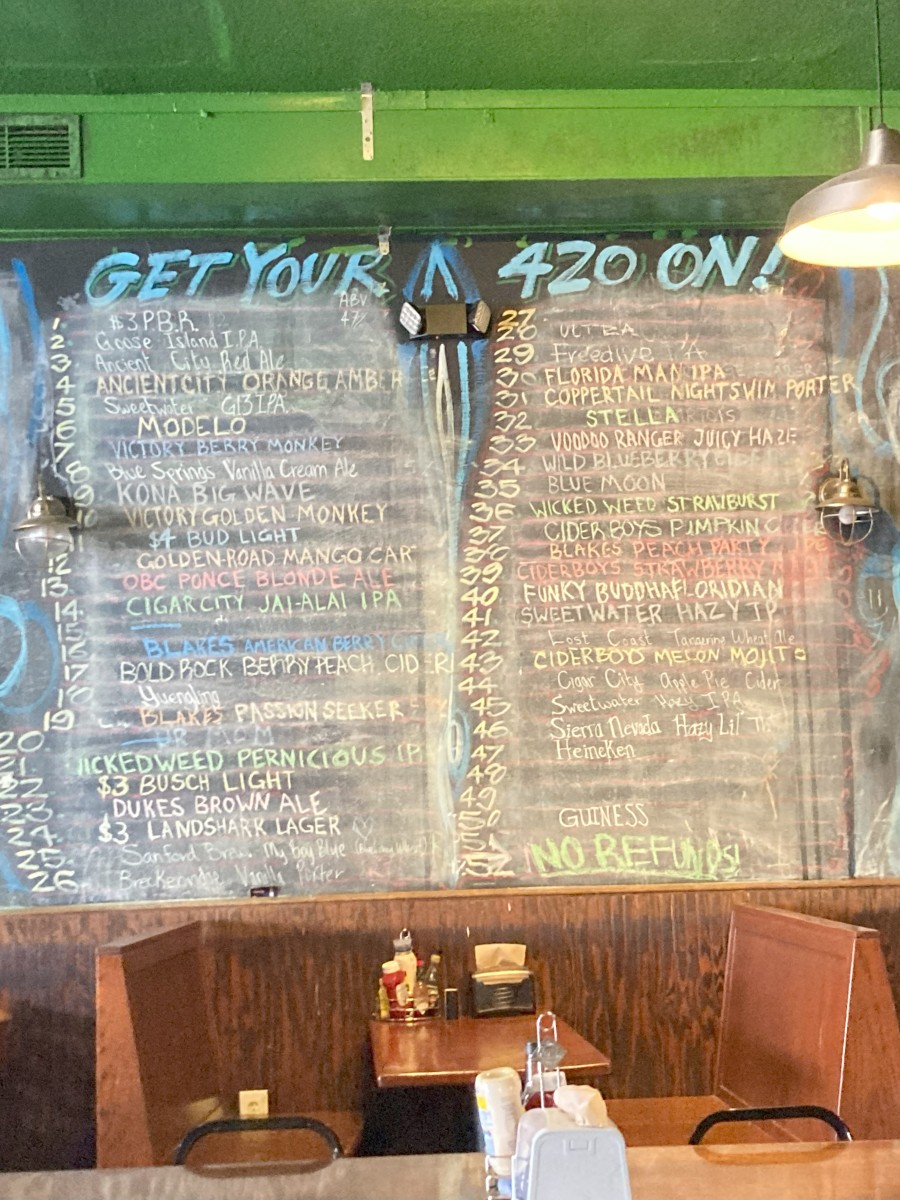 GET YOUR 420 ON!
ABV
1 $3 P.B.R
2. Goose Island I.P.A.
3 Ancient City Red Ale
4 ANCIENT CITY ORANGE AMBER
5 Sweetwater G13 IPA
6 MODELO
7 VICTORY BERRY MONKEY
8 Blue Springs Vanilla Cream Ale
9 KONA BIG WAVE
VICTORY GOLDEN MONKEY
$4 BUD LIGHT
12 GOLDEN-ROAD MANGO CAR
13 OBC PONCE BLONDE ALE
14 CIGAR CITY JAI-ALAI IPA
15
BLAKES AMERICAN BERRY
17 BOLD ROCK BERRY PEACH CIDER
Yuengling
19 BLAKES PASSION SEEKER
20
ICKEDWEED PERNICIOUS IP
$3 BUSCH LIGHT
DUKES BROWN ALE
$3 LANDSHARK LAGER
Sanford Brew. My Bay Blue
26 Breckenridge Vanilla Porter
27
28 ULTRA
29 Freedive
30 FLORIDA MAN IPA
31 COPPERTAIL NIGHTSWIM PORTER
32 STELLA ARTOIS
33 VOODOO RANGER JUICY HAZE
34 WILD BLUEBERRY
35 BLUE MOON
36 WICKED WEED STRAWBURST
37 CIDERBOYS PUMPKIN
38 BLAKES PEACH PARTY
39 CIDERBOYS STRAWBERRY
40 FUNKY BUDDHA FLORIDIAN
41 SWEETWATER HAZY IP
42 Lost Coast Tangerine Wheat Ale
43 CIDERBOYS MELON MOJITO
44 Cigar City Apple Pie Cider
45 Sweetwater Hazy I.P.A.
46 Sierra Nevada Hazy Lil
47 Heineken
48
49
GUINESS
51
52 NO REFUNDS!